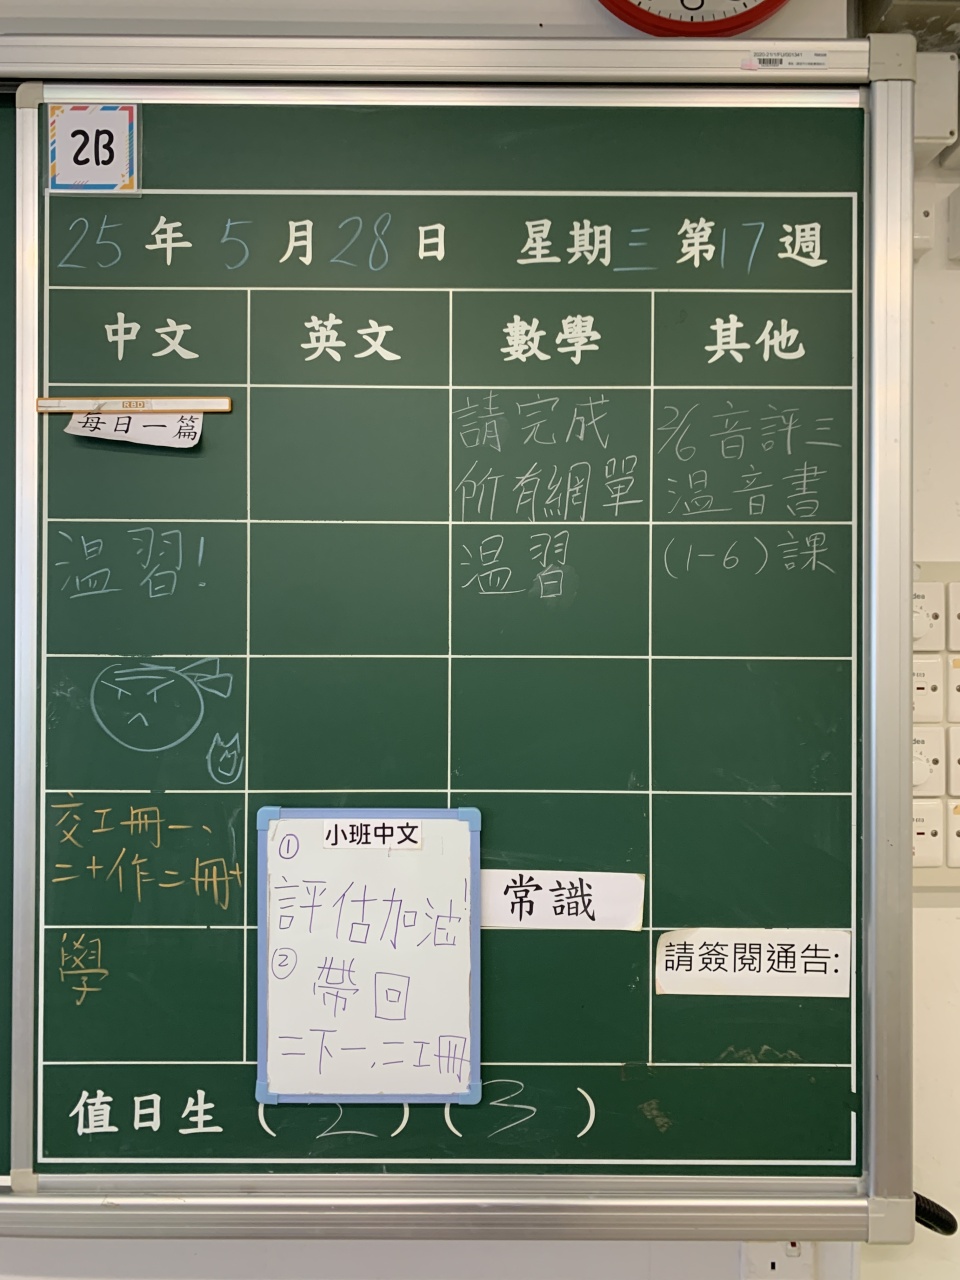 2B
25年5月28日 星期三 第17週
中文 英文 數學 其他
RBD
每日一篇
請完成
所有網單
2/6音評三
溫音書
溫習!
溫習
(1-6)課
交工冊一、
二+作二冊+
學
小班中文
①
評估加油!
②
帶回
二下一,二工冊
常識
請簽閱通告:
值日生(2)(3)